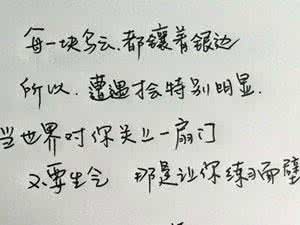 每一块乌云.都镶着银边
所以.遭遇才会特别明显.
当世界对你关上一扇门
不要生气 那是让你练习面壁